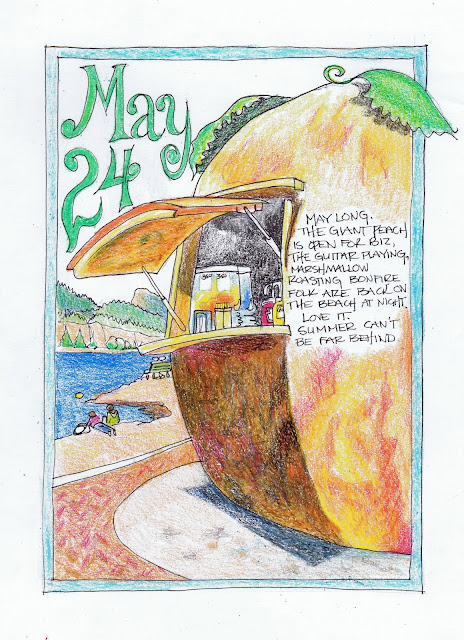 May
24
MAY LONG.
THE GIANT PEACH
IS OPEN FOR BIZ,
THE GUITAR PLAYING,
MARSHMALLOW
ROASTING BONFIRE
FOLK ARE BACK ON
THE BEACH AT NIGHT.
LOVE IT.
SUMMER CAN'T
BE FAR BEHIND